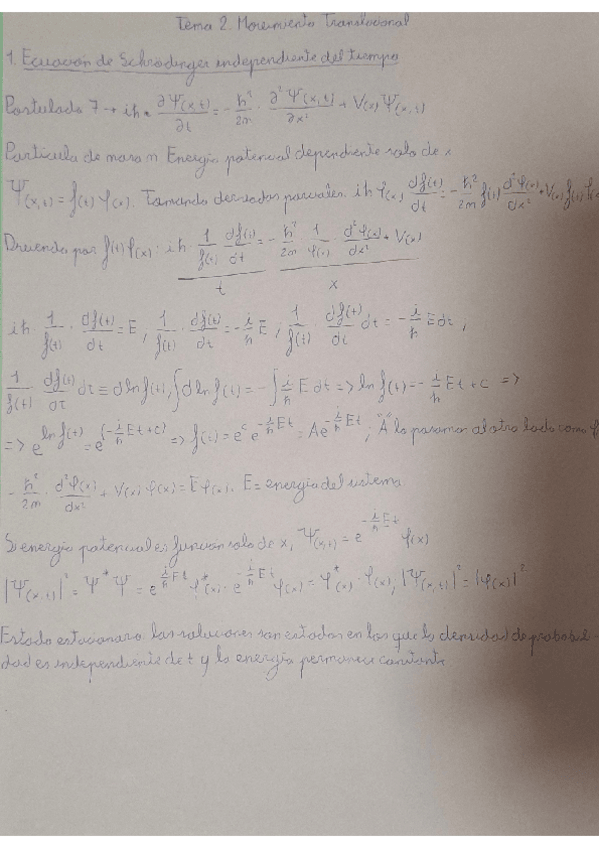 Tema 2. Movimiento Translacional
1. Ecuación de Schrödinger independiente del tiempo
Postulado 7 → iħ · ∂Ψ(x,t)/∂t = -ħ²/2m · ∂²Ψ(x,t)/∂x² + V(x) Ψ(x,t)
Partícula de masa m Energía potencial dependiente solo de x
Ψ(x,t) = f(t) φ(x). Tomando derivadas parciales. iħ φ(x) df(t)/dt = -ħ²/2m f(t) d²φ(x)/dx² + V(x) f(t) φ(x)
Dividiendo por f(t) φ(x): iħ · 1/f(t) df(t)/dt = -ħ²/2m 1/φ(x) · d²φ(x)/dx² + V(x)
t x
iħ · 1/f(t) · df(t)/dt = E, 1/f(t) · df(t)/dt = -i/ħ E, 1/f(t) · df(t)/dt dt = -i/ħ E dt,
1/f(t) df(t)/dt dt ≡ d ln f(t), ∫ d ln f(t) = -∫ i/ħ E dt => ln f(t) = -i/ħ Et + c =>
=> e^(ln f(t)) = e^(-i/ħ Et + c) => f(t) = e^c e^(-i/ħ Et) = A e^(-i/ħ Et); "A" lo pasamos al otro lado como
-ħ²/2m · d²φ(x)/dx² + V(x) φ(x) = E φ(x). E = energía del sistema
Si energía potencial es función solo de x, Ψ(x,t) = e^(-i/ħ Et) φ(x)
|Ψ(x,t)|² = Ψ* Ψ = e^(i/ħ Et) φ*(x) · e^(-i/ħ Et) φ(x) = φ*(x) · φ(x), |Ψ(x,t)|² = |φ(x)|²
Estado estacionario, las soluciones son estados en los que la densidad de probabili-
dad es independiente de t y la energía permanece constante